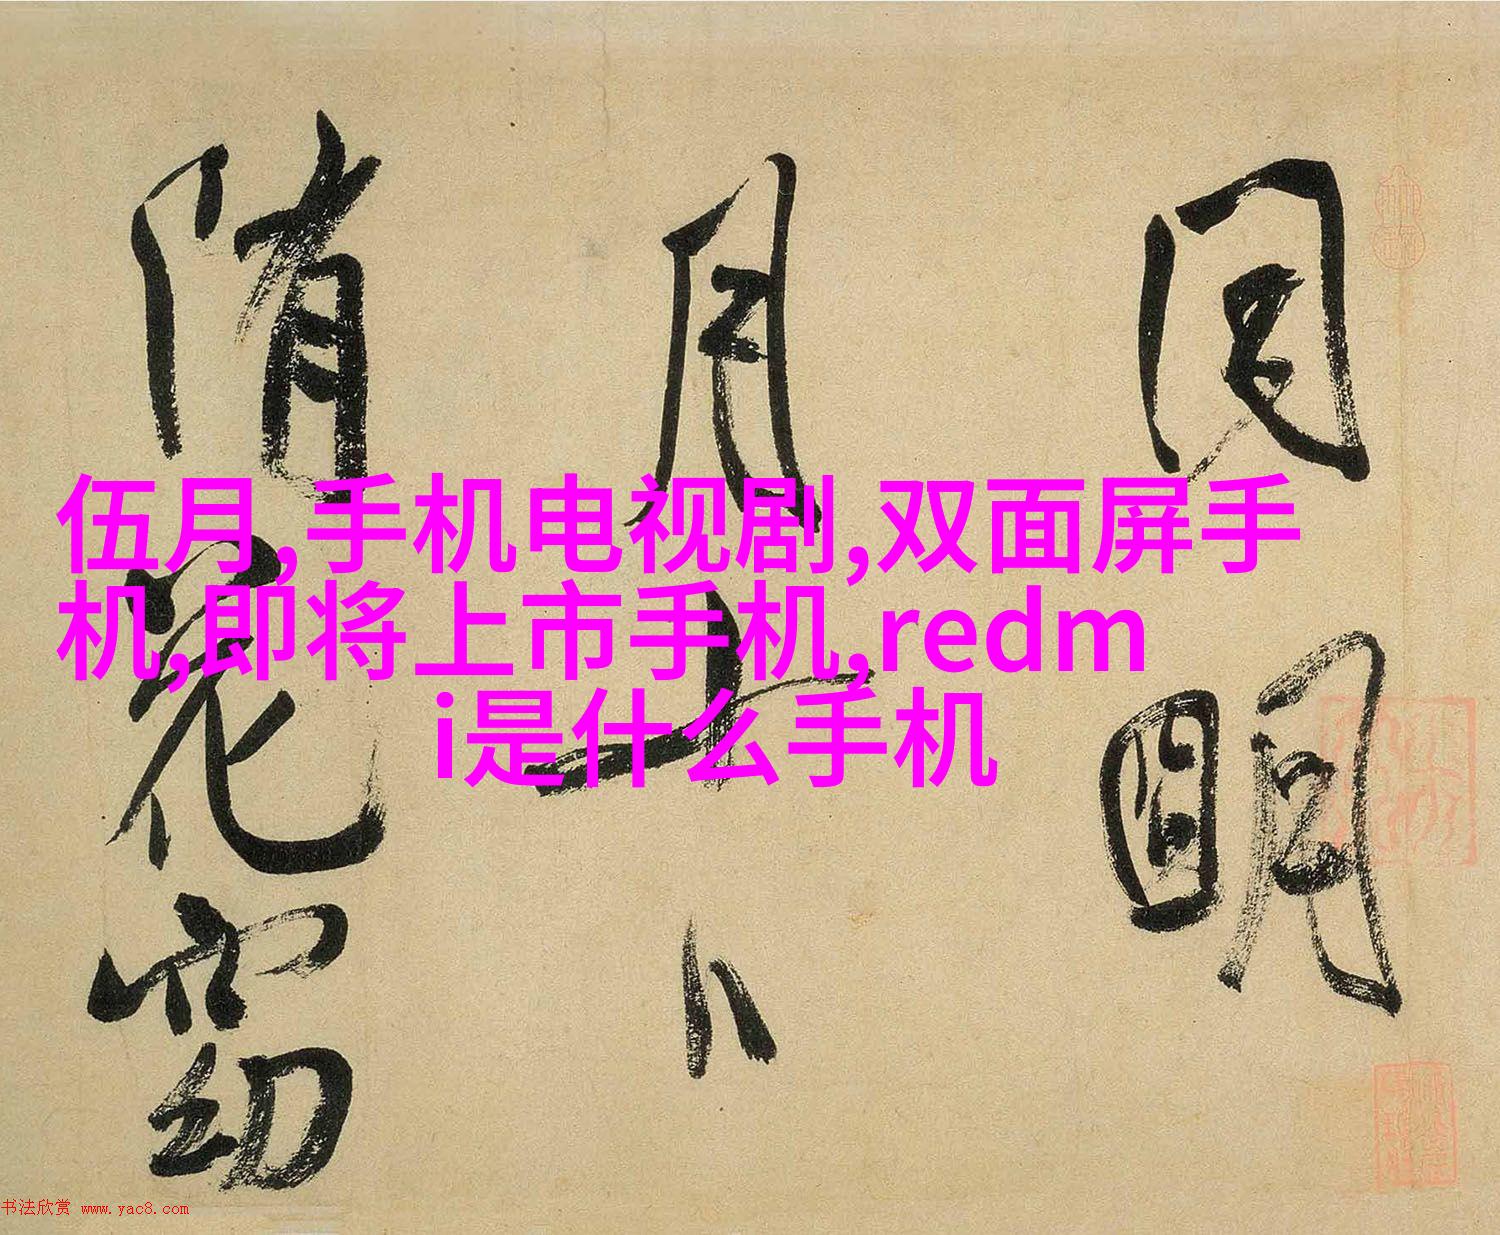 伍月,手机电视剧,双面屏手
机,即将上市手机,redm
i是什么手机
闰明
月上八
随花窈
书法欣赏 www.yac8.com